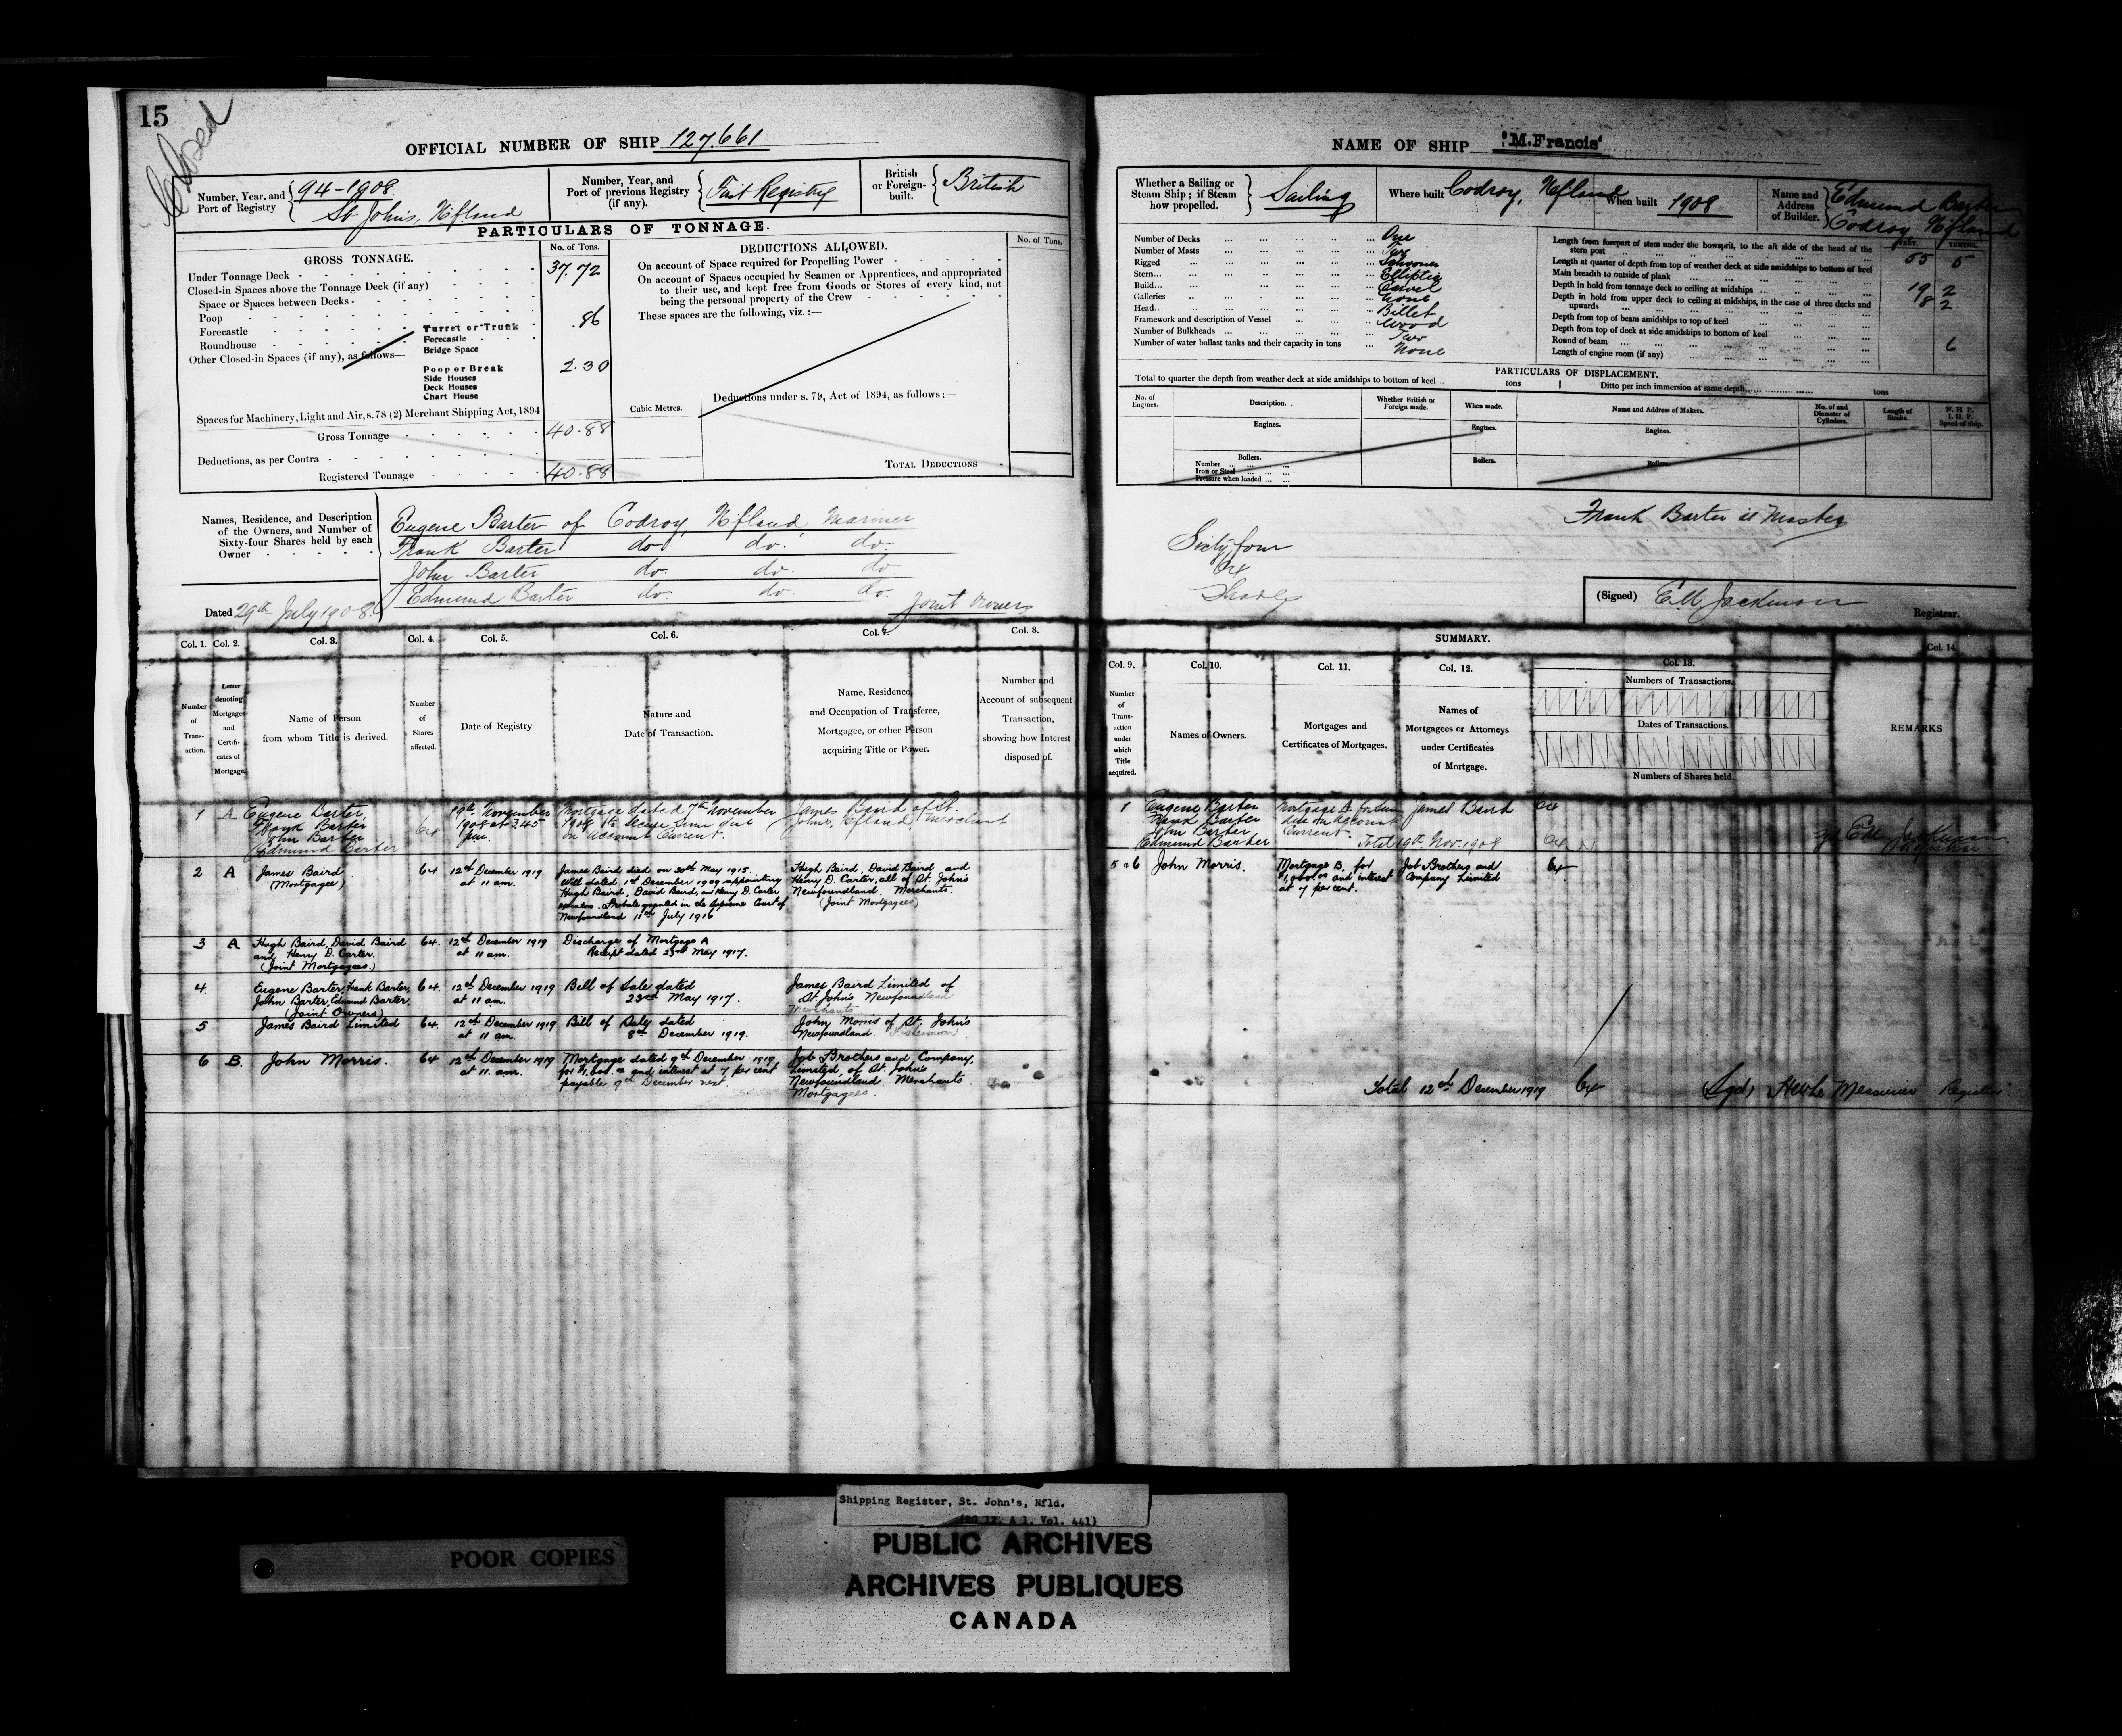 15
Closed
OFFICIAL NUMBER OF SHIP 127.661
Number, Year, and Port of Registry
94-1908.
St Johns, Nfland
Number, Year, and Port of previous Registry (if any).
First Registry
British or Foreign-built.
British
PARTICULARS OF TONNAGE.
GROSS TONNAGE.
No. of Tons.
Under Tonnage Deck - 37.72
Closed-in Spaces above the Tonnage Deck (if any)
Space or Spaces between Decks -
Poop
Forecastle
Roundhouse
Other Closed-in Spaces (if any), as follows—
Turret or Trunk .86
Forecastle
Bridge Space
Poop or Break 2.30
Side Houses
Deck Houses
Chart House
Spaces for Machinery, Light and Air, s.78 (2) Merchant Shipping Act, 1894
Gross Tonnage 40.88
Deductions, as per Contra -
Registered Tonnage 40.88
DEDUCTIONS ALLOWED.
No. of Tons.
On account of Space required for Propelling Power
On account of Spaces occupied by Seamen or Apprentices, and appropriated
to their use, and kept free from Goods or Stores of every kind, not
being the personal property of the Crew
These spaces are the following, viz. :—
Cubic Metres.
Deductions under s. 79, Act of 1894, as follows :—
TOTAL DEDUCTIONS
Names, Residence, and Description
of the Owners, and Number of
Sixty-four Shares held by each
Owner
Eugene Barter of Codroy, Nfland, Mariner
Frank Barter do do. do.
John Barter do. do. do
Edmund Barter do. do. do.
Joint Owners
Dated 29th July 1908
Col. 1. Col. 2. Col. 3. Col. 4. Col. 5. Col. 6. Col. 7. Col. 8.
Number of Transaction.
Letter denoting Mortgages and Certificates of Mortgage.
Name of Person from whom Title is derived.
Number of Shares affected.
Date of Registry
Nature and Date of Transaction.
Name, Residence, and Occupation of Transferee, Mortgagee, or other Person acquiring Title or Power.
Number and Account of subsequent Transaction, showing how Interest disposed of.
1 A Eugene Barter,
Frank Barter
John Barter
Edmund Barter
64
19th November
1908 at 3.45
p.m.
Mortgage dated 7th November
1908 to secure sum due
on Account Current.
James Baird of St.
John's, Nfland Merchant
2 A James Baird
(Mortgagee)
64 12th December 1919
at 11 am.
James Baird died on 30th May 1915.
Will dated 1st December 1909 appointing
Hugh Baird, David Baird, and Henry D. Carter
executors. Probate granted in the Supreme Court of
Newfoundland 11th July 1916
Hugh Baird, David Baird and
Henry D. Carter, all of St. John's
Newfoundland. Merchants.
(Joint Mortgagees)
3 A Hugh Baird, David Baird
and Henry D. Carter.
(Joint Mortgagees.)
64. 12th December 1919
at 11 am.
Discharge of Mortgage A
Receipt dated 23rd May 1917.
4. Eugene Barter, Frank Barter,
John Barter, Edmund Barter.
(Joint Owners)
64. 12th December 1919
at 11 am.
Bill of Sale dated
23rd May 1917.
James Baird Limited of
St. John's Newfoundland
Merchants
5 James Baird Limited
64. 12th December 1919
at 11 am.
Bill of Sale dated
8th December 1919.
John Morris of St. John's
Newfoundland.
6 B. John Morris.
64 12th December 1919
at 11. am.
Mortgage dated 9th December 1919
for $1,000.00 and interest at 7 per cent
payable 9th December next.
Job Brothers and Company,
Limited, of St. John's
Newfoundland Merchants.
Mortgagees.
NAME OF SHIP 'M.Francis'
Whether a Sailing or Steam Ship; if Steam how propelled.
Sailing
Where built Codroy, Nfland
When built 1908
Name and Address of Builder.
Edmund Barter
Codroy Nfland
Number of Decks One
Number of Masts Two
Rigged Schooner
Stern Elliptic
Build Carvel
Galleries None
Head Billet
Framework and description of Vessel Wood
Number of Bulkheads Two
Number of water ballast tanks and their capacity in tons None
FEET. TENTHS.
Length from forepart of stem under the bowsprit, to the aft side of the head of the
stern post 55 5
Length at quarter of depth from top of weather deck at side amidships to bottom of keel
Main breadth to outside of plank 19 2
Depth in hold from tonnage deck to ceiling at midships 8 2
Depth in hold from upper deck to ceiling at midships, in the case of three decks and
upwards
Depth from top of beam amidships to top of keel
Depth from top of deck at side amidships to bottom of keel
Round of beam 6
Length of engine room (if any)
PARTICULARS OF DISPLACEMENT.
Total to quarter the depth from weather deck at side amidships to bottom of keel .. tons
Ditto per inch immersion at same depth tons
No. of Engines.
Description.
Whether British or Foreign made.
When made.
Name and Address of Makers.
No. of and Diameter of Cylinders.
Length of Stroke.
N. H. P.
I. H. P.
Speed of Ship.
Engines.
Engines.
Engines.
Boilers.
Number
Iron or Steel
Pressure when loaded
Boilers.
Boilers.
Frank Barter is Master
Sixty four
64
Shares
(Signed) Registrar.
SUMMARY.
Col. 9. Col. 10. Col. 11. Col. 12. Col. 13. Col. 14
Number of Transaction under which Title acquired.
Names of Owners.
Mortgages and Certificates of Mortgages.
Names of Mortgagees or Attorneys under Certificates of Mortgage.
Numbers of Transactions.
Dates of Transactions.
Numbers of Shares held.
REMARKS
1 Eugene Barter
Frank Barter
John Barter
Edmund Barter
Mortgage A for sum
due on Account
Current.
James Baird
64
Total 19th Nov. 1908 64
5 & 6 John Morris.
Mortgage B, for
$1,000.00 and interest
at 7 per cent.
Job Brothers and
Company Limited
64
Total 12th December 1919 64
Sgd, Registrar
Shipping Register, St. John's, Nfld.
(RG 12, A 1, Vol. 441)
POOR COPIES
PUBLIC ARCHIVES
ARCHIVES PUBLIQUES
CANADA